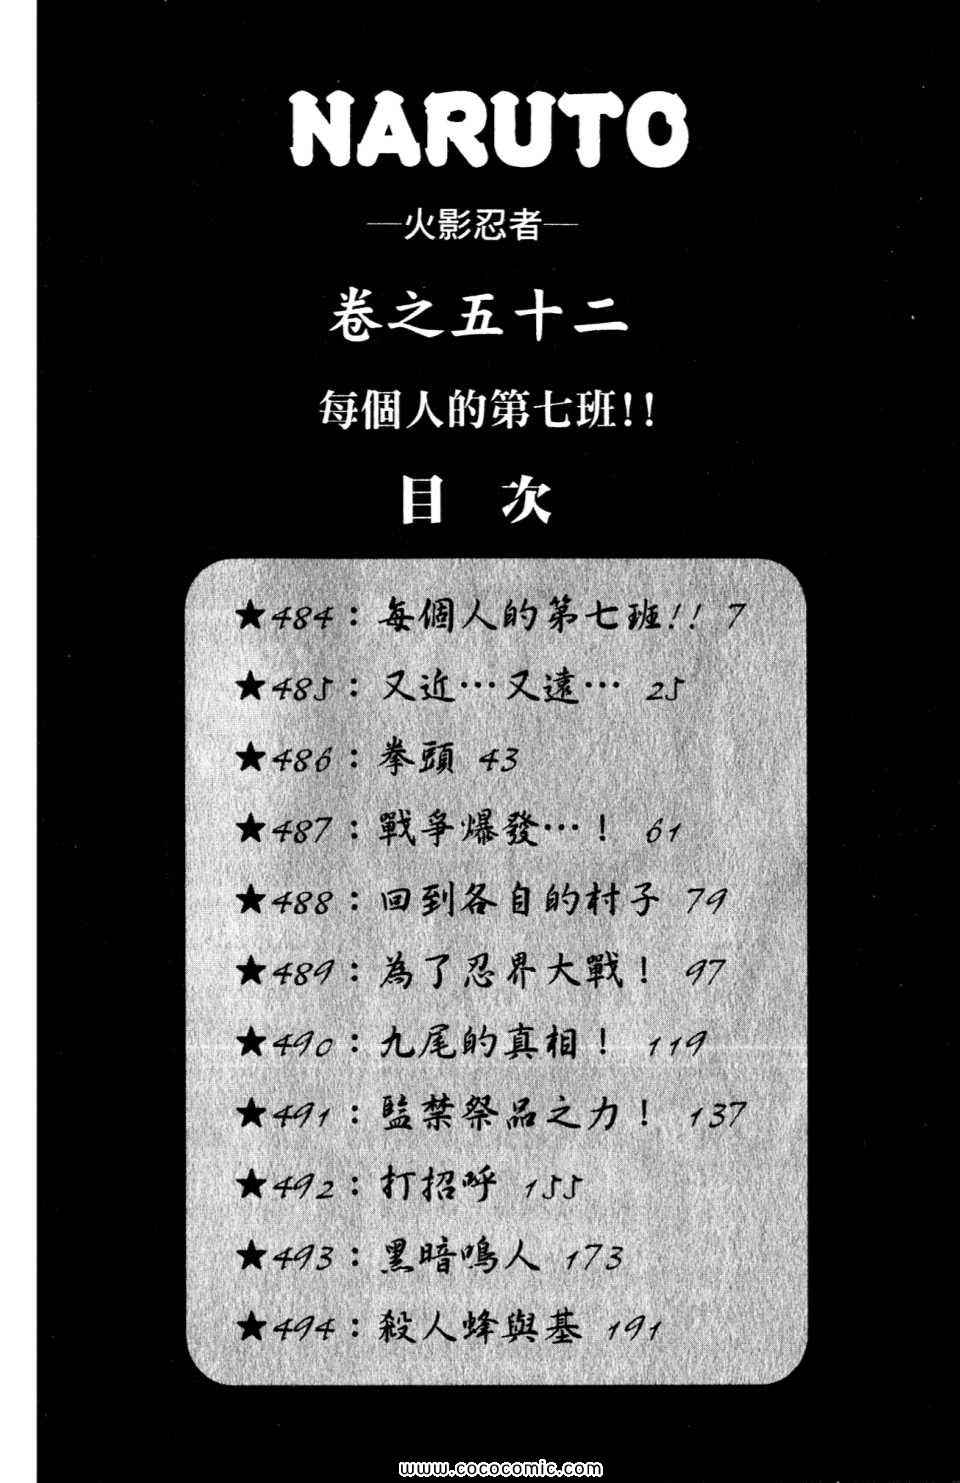 NARUTO
—火影忍者—
卷之五十二
每個人的第七班!!
目 次
★484：每個人的第七班!! 7
★485：又近…又遠… 25
★486：拳頭 43
★487：戰爭爆發…! 61
★488：回到各自的村子 79
★489：為了忍界大戰! 97
★490：九尾的真相! 119
★491：監禁祭品之力! 137
★492：打招呼 155
★493：黑暗鳴人 173
★494：殺人蜂與基 191
www.cococomic.com